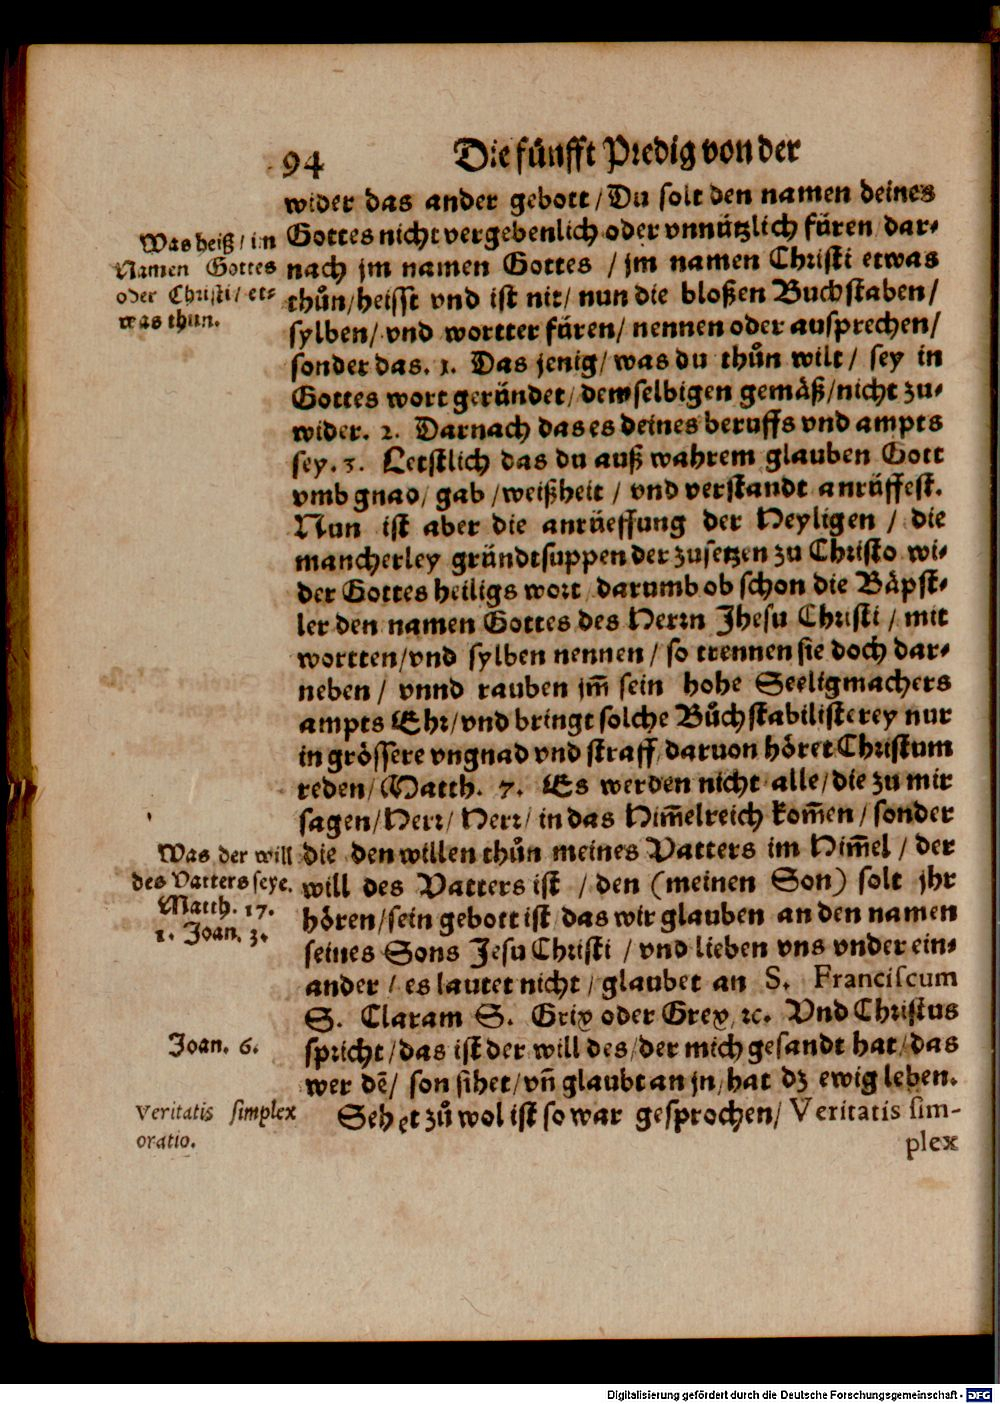 94 Die fünfft Predig von der
wider das ander gebott / Du solt den namen deines
Gottes nicht vergebenlich oder vnnützlich füren / dar-
nach jm namen Gottes / jm namen Christi etwas
thůn / heisst vnd ist nit / nun die bloßen Buchstaben /
sylben / vnd wortter füren / nennen oder ausprechen /
sonder das. 1. Das jenig / was du thůn wilt / sey in
Gottes wort geründet / demselbigen gemäß / nicht zu-
wider. 2. Darnach das es deines beruffs vnd ampts
sey. 3. Letstlich das du auß wahrem glauben Gott
vmb gnad / gab / weißheit / vnd verstandt anrüffest.
Nun ist aber die anrüeffung der Heyligen / die
mancherley gründtsuppen der zusetzen zu Christo wi-
der Gottes heiligs wort / darumb ob schon die Bäpst-
ler den namen Gottes des Herrn Jhesu Christi / mit
wortten / vnd sylben nennen / so trennen sie doch dar-
neben / vnnd rauben jm̃ sein hohe Seeligmachers
ampts Ehr / vnd bringt solche Bůchstabilisterey nur
in grössere vngnad vnd straff / daruon höret Christum
reden / Matth. 7. Es werden nicht alle / die zu mir
sagen / Herr / Herr / in das Him̃elreich kom̃en / sonder
die den willen thůn meines Vatters im Him̃el / der
will des Vatters ist / den (meinen Son) solt jhr
hören / sein gebott ist das wir glauben an den namen
seines Sons Jesu Christi / vnd lieben vns vnder ein-
ander / es lautet nicht / glaubet an S. Franciscum
S. Claram S. Grix oder Grex / ꝛc. Vnd Christus
spricht / das ist der will des / der mich gesandt hat / das
wer dẽ / son sihet / vñ glaubt an jn / hat dz ewig leben.
Sehet zů wol ist so war gesprochen / Veritatis sim-
plex
Was heiß / in
Namen Gottes
oder Christi / et-
was thun.
Was der will
des Vatters seye.
Matth. 17.
1. Joan. 3.
Joan. 6.
Veritatis simplex
oratio.
Digitalisierung gefördert durch die Deutsche Forschungsgemeinschaft - DFG